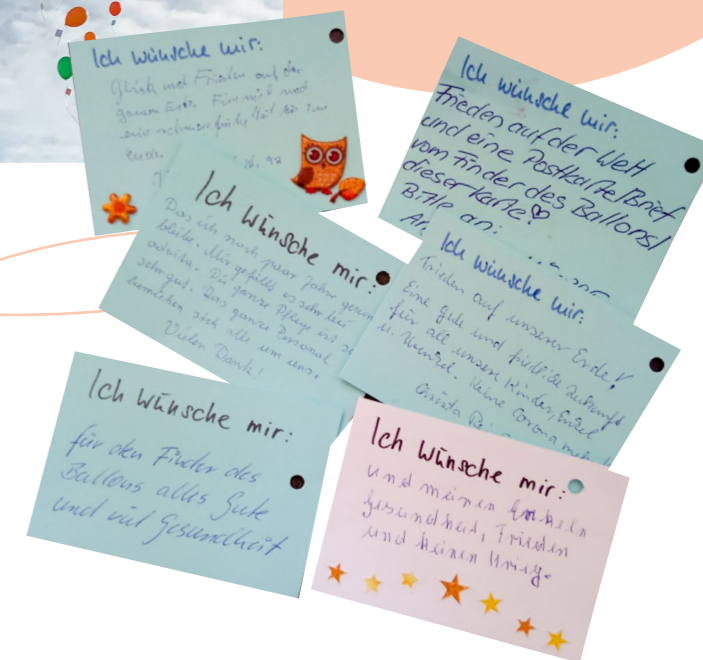 Ich wünsche mir:
Glück und Frieden auf der
ganzen Erde. Für mich noch
eine schmerzfreie Zeit bis zum
Ich wünsche mir:
Frieden auf der Welt
und eine Postkarte/Brief
vom Finder des Ballons!
dieser Karte!
Bitte an:
Ich wünsche mir:
Das ich noch paar Jahre gesund
bleibe. Mir gefällt es sehr bei
Die ganze Pflege ist
sehr gut. Das ganze Personal
sich alle um uns.
Vielen Dank!
Ich wünsche mir:
Frieden auf unserer Erde!
Eine gute und friedliche Zukunft
für all unsere Kinder, Enkel
u. Keine Corona mehr
Christa
Ich wünsche mir:
für den Finder des
Ballons alles Gute
und viel Gesundheit
Ich wünsche mir:
und meinen Enkeln
Gesundheit, Frieden
und keinen Krieg.